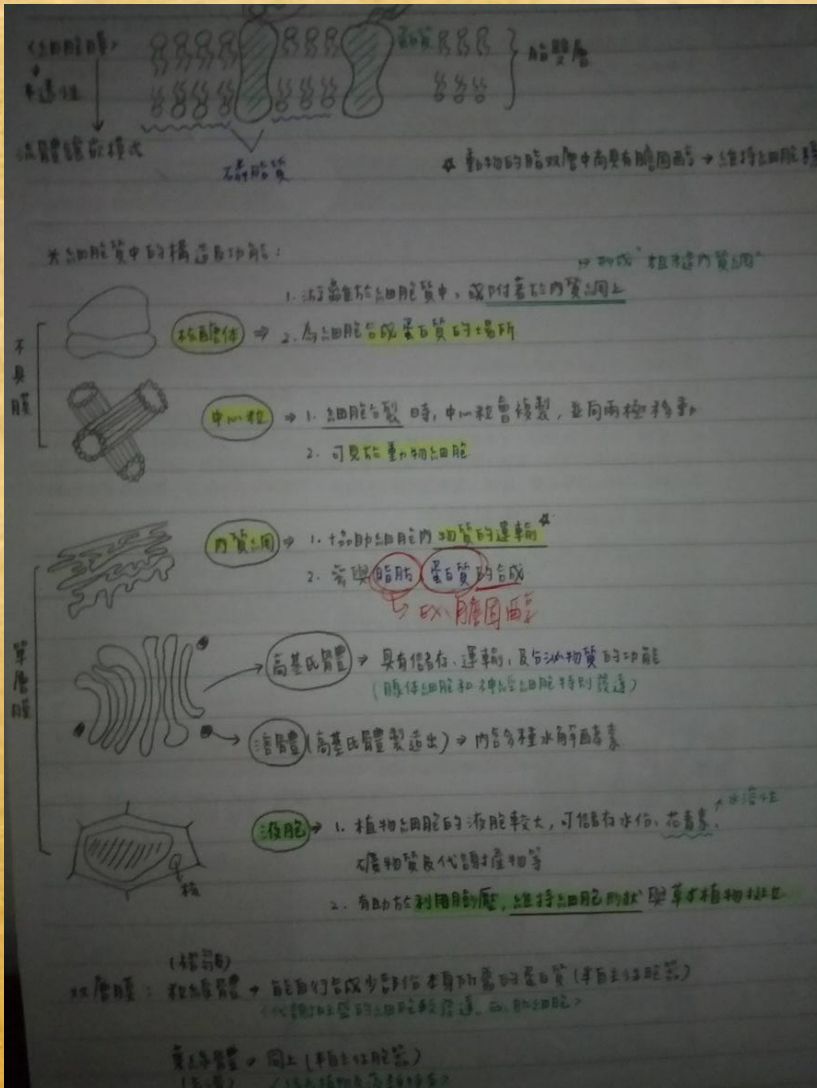 <細胞膜>
蛋白質
脂雙層
半透性
流體鑲嵌模式
磷脂質
☆ 動物的脂双層中尚具有膽固醇 → 維持細胞
※細胞質中的構造與功能:
→形成"粗糙內質網"
1. 游離於細胞質中,或附著於內質網上
不具膜
核醣体 ⇒ 2. 為細胞合成蛋白質的場所
中心粒 ⇒ 1. 細胞分裂時,中心粒會複製,並向兩極移動
2. 可見於動物細胞
內質網 ⇒ 1. 協助細胞內物質的運輸☆
2. 參與脂肪 蛋白質的合成
ex、膽固醇
單層膜
高基氏體 → 具有儲存、運輸,及分泌物質的功能
(腺体細胞和神經細胞特別發達)
溶體(高基氏體製造出) → 內含多種水解酵素
液胞 → 1. 植物細胞的液胞較大,可儲存水份、花青素,
水溶性
礦物質及代謝產物等
核
2. 有助於利用膨壓,維持細胞形狀與草本植物挺立
双層膜: 粒線體 → 能自行合成少部份本身所需的蛋白質(半自主胞器)
<代謝旺盛的細胞較發達 ex. 肌細胞>
葉綠體 → 同上(半自主胞器)